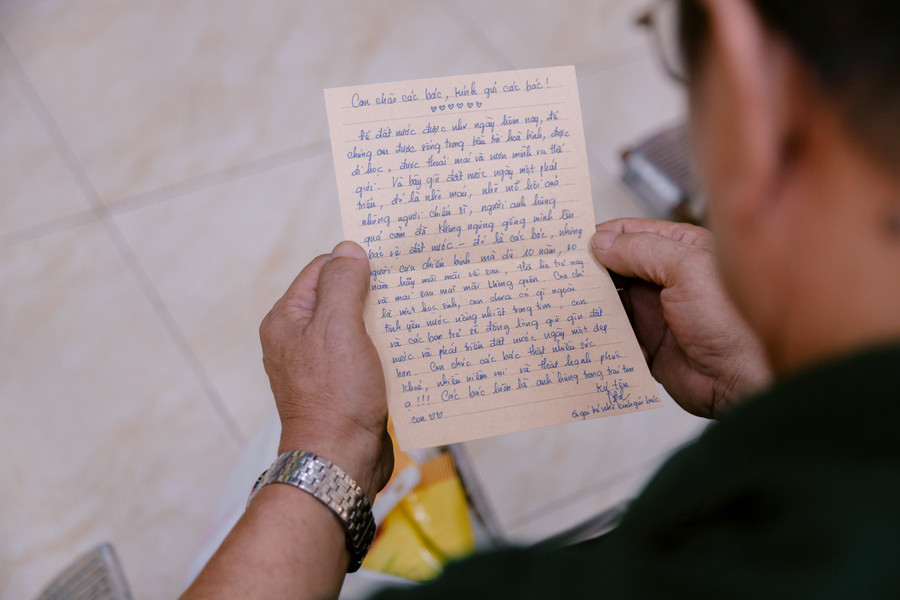 Con chào các bác, kính gửi các bác!
Để đất nước được như ngày hôm nay, để
chúng con được sống trong bầu trời hoà bình, được
đi học, được thoải mái và vươn mình ra thế
giới. Và bây giờ đất nước ngày một phát
triển, đó là nhờ máu, nhờ mồ hôi của
những người chiến sĩ, người anh hùng
quả cảm đã không ngừng gắng mình lên
bảo vệ đất nước - đó là các bác, những
người cựu chiến binh mà dù 10 năm, 20
năm hay mãi mãi về sau, thế hệ trẻ nay
và mai sau mãi mãi không quên. Con chỉ
là một học sinh, con chưa có gì ngoài
tình yêu nước nồng nhiệt trong tim, con
và các bạn trẻ sẽ đồng lòng giữ gìn đất
nước và phát triển đất nước ngày một đẹp
hơn. Con chúc các bác thật nhiều sức
khoẻ, nhiều niềm vui và thật hạnh phúc
ạ!!! Các bác luôn là anh hùng trong trái tim
con
Ký tên
Cô gái bé nhỏ kính gửi bác